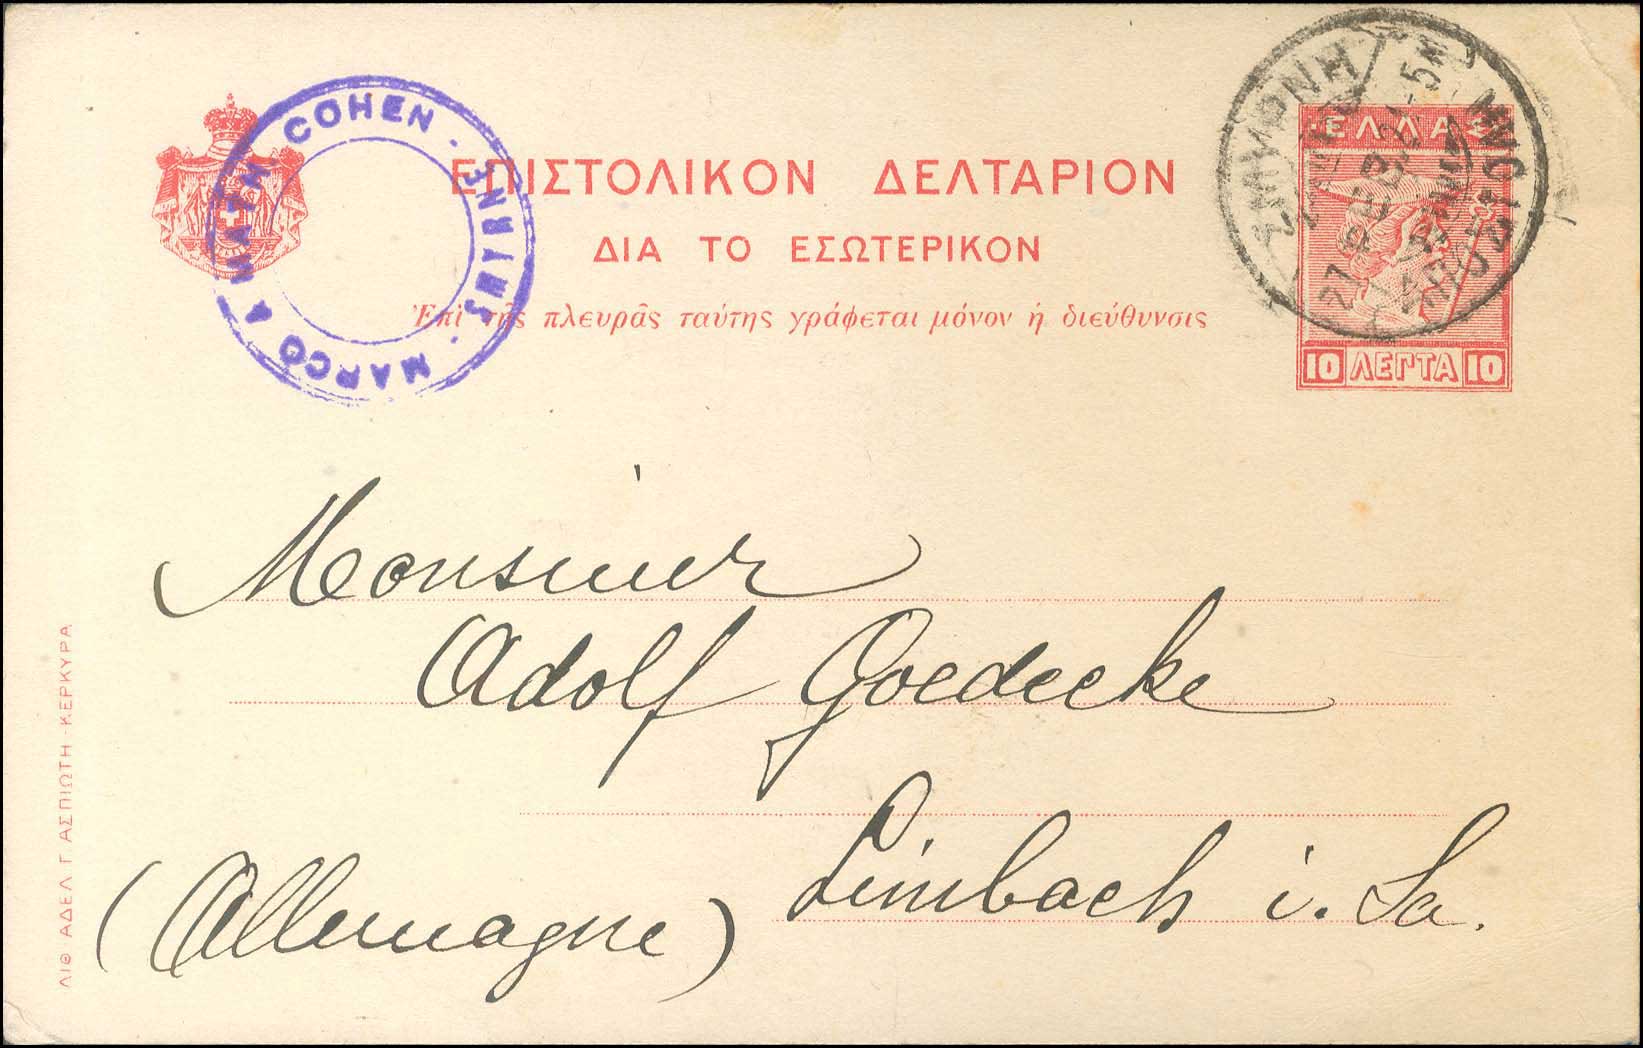 MARCO & MATH. COHEN - SMYRNE -
ΕΠΙΣΤΟΛΙΚΟΝ ΔΕΛΤΑΡΙΟΝ
ΔΙΑ ΤΟ ΕΣΩΤΕΡΙΚΟΝ
Ἐπὶ τῆς πλευρᾶς ταύτης γράφεται μόνον ἡ διεύθυνσις
ΕΛΛΑΣ
10 ΛΕΠΤΑ 10
ΣΜΥΡΝΗ
Monsieur
Adolf Goedecke
Limbach i. Sa.
(Allemagne)
ΛΙΘ ΑΔΕΛ Γ ΑΣΠΙΩΤΗ - ΚΕΡΚΥΡΑ